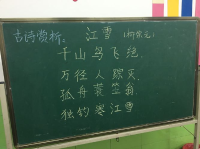 古诗赏析。 江雪 (柳宗元)
千山鸟飞绝
万径人踪灭
孤舟蓑笠翁
独钓寒江雪